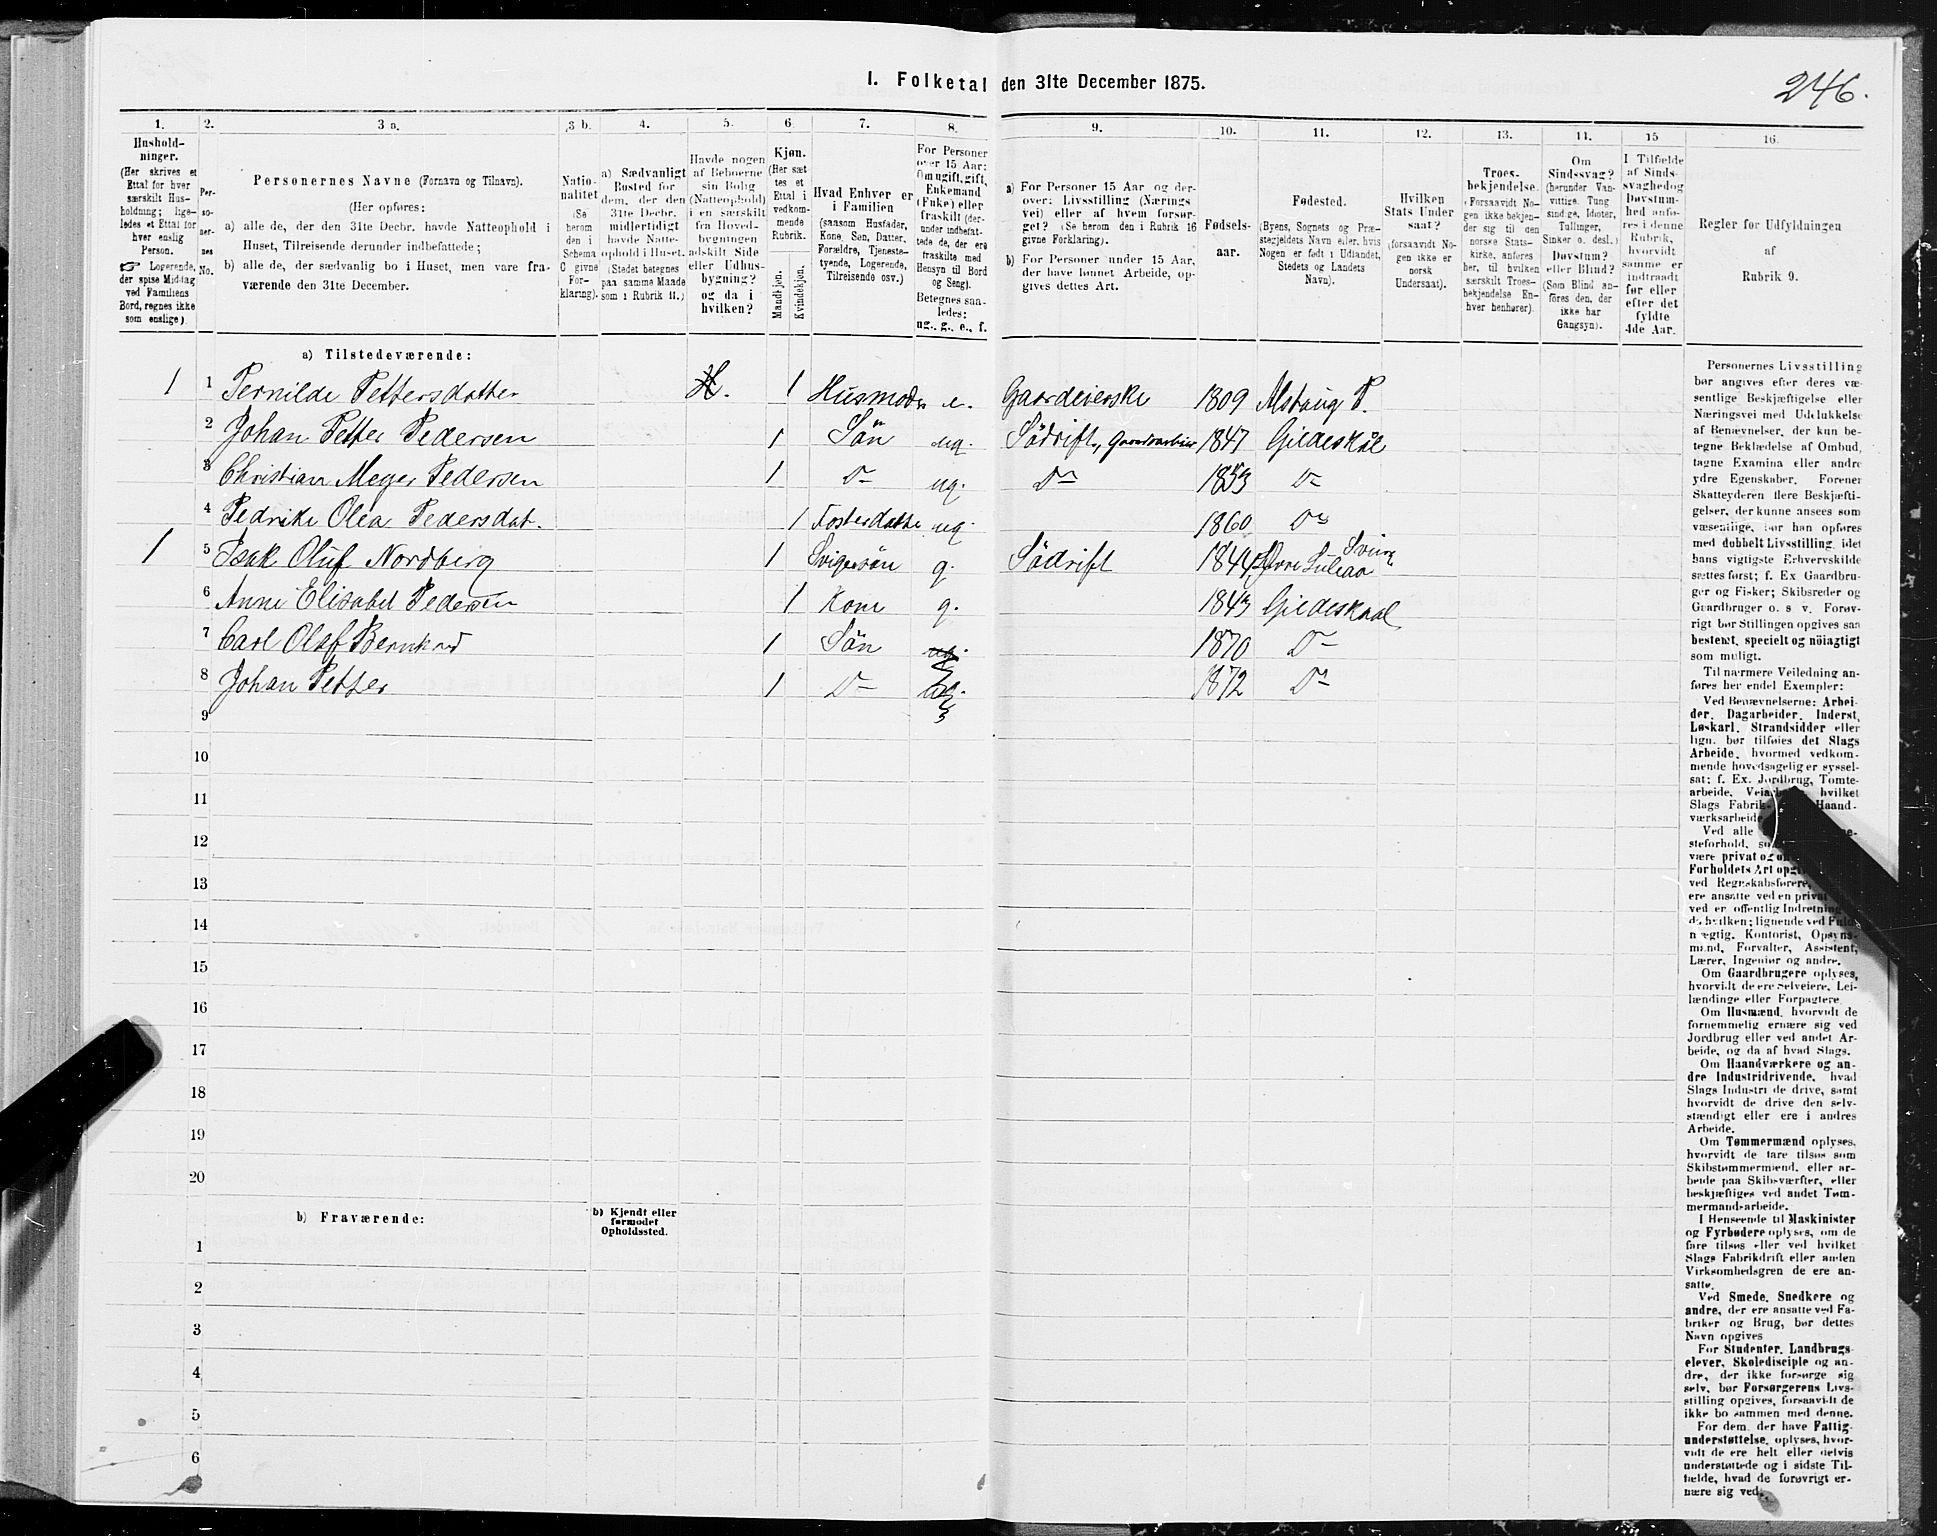 I. Folketal den 31te December 1875.
246.
1. 2. 3 a. 3 b. 4. 5. 6. 7. 8. 9. 10. 11. 12. 13. 14. 15 16.
Hushold-
ninger.
(Her skrives et
Ettal for hver
særskilt Hus-
holdning; lige-
ledes et Ettal for
hver enslig
Person.
☞ Logerende,
der spise Middag
ved Familiens
Bord, regnes ikke
som enslige).
Per-
so-
ner-
nes
No.
Personernes Navne (Fornavn og Tilnavn).
(Her opføres:
a) alle de, der den 31te Decbr. havde Natteophold i
Huset, Tilreisende derunder indbefattede;
b) alle de, der sædvanlig bo i Huset, men vare fra-
værende den 31te December.
Natio-
nalitet
(Se
herom
den i
Schema
C givne
For-
klaring).
a) Sædvanligt
Bosted for
dem, der den
31te Decbr.
midlertidigt
havde Natte-
ophold i Huset.
(Stedet betegnes
paa samme Maade
som i Rubrik 11.)
Havde nogen
af Beboerne
sin Bolig
(Natteophold)
i en særskilt
fra Hoved-
bygningen
adskilt Side
eller Udhus-
bygning?
og da i
hvilken?
Kjøn.
(Her sæt
tes et
Ettal i
vedkom-
mende
Rubrik.
Mandkjøn.
Kvindekjøn.
Hvad Enhver er
i Familien
(saasom Husfader,
Kone, Søn, Datter,
Forældre, Tjeneste-
tyende, Logerende,
Tilreisende osv.)
For Personer
over 15 Aar:
Om ugift, gift,
Enkemand
(Enke) eller
fraskilt (der-
under indbefat-
tede de, der ere
fraskilte med
Hensyn til Bord
og Seng).
Betegnes saa-
ledes:
ug., g., e., f.
a) For Personer 15 Aar og der-
over: Livsstilling (Nærings
vei) eller af hvem forsør-
get? (Se herom den i Rubrik 16
givne Forklaring).
b) For Personer under 15 Aar,
der have lønnet Arbeide, op-
gives dettes Art.
Fødsels-
aar.
Fødested.
(Byens, Sognets og Præ-
stegjeldets Navn eller, hvis
Nogen er født i Udlandet,
Stedets og Landets
Navn).
Hvilken
Stats Under
saat?
(forsaavidt No-
gen ikke er
norsk
Undersaat).
Troes-
bekjendelse.
(Forsaavidt No-
gen ikke bekjen-
der sig til den
norske Stats-
kirke, anføres
her, til hvilken
særskilt Troes-
bekjendelse En-
hver henhører).
Om
Sindssvag?
(herunder Van-
vittige, Tung
sindige, Idioter,
Tullinger,
Sinker o. desl.)
Døvstum?
eller Blind?
(Som Blind an-
føres den, der
ikke har
Gangsyn).
I Tilfælde
af Sinds-
svaghed og
Døvstum-
hed anfø-
res i denne
Rubrik,
hvorvidt
samme er
indtraadt
før eller
efter det
fyldte
4de Aar.
Regler for Udfyldningen
af
Rubrik 9.
a) Tilstedeværende:
1 1 Pernilde Pettersdatter 1 Husmoder e. Gaardeierske 1809 Alstaug P.
2 Johan Petter Pedersen 1 Søn ug. Södrift, Gaardsarbeide 1847 Gildeskål
3 Christian Meyer Pedersen 1 Do ug. Do 1853 Do
4 Pedrike Olea Pedersdat. 1 Fosterdatte ug. 1860 Do
1 5 Isak Oluf Nordberg 1 Svigersön g. Södrift 1844 Öfvre Luleaa
6 Anne Elisabet Pedersen 1 Kone g. 1843 Gildeskaal
7 Carl Olaf Bernhard 1 Søn ug. 1870 Do
8 Johan Petter 1 Do ug. 1872 Do
9
10
11
12
13
14
15
16
17
18
19
20
b) Fraværende:
b) Kjendt eller
formodet
Opholdssted.
1
2
3
4
5
6
Personernes Livsstilling
bør angives efter deres væ-
sentlige Beskjæftigelse eller
Næringsvei med Udelukkelse
af Benævnelser, der kun be-
tegne Beklædelse af Ombud,
tagne Examina eller andre
ydre Egenskaber. Forener
Skatteyderen flere Beskjæfti-
gelser, der kunne ansees som
væsentlige, bør han opføres
med dobbelt Livsstilling, idet
hans vigtigste Erhvervskilde
sættes først; f. Ex Gaardbru-
ger og Fisker; Skibsreder og
Gaardbruger o. s v. Forøv-
rigt bør Stillingen opgives saa
bestemt, specielt og nöiagtigt
som muligt.
Til nærmere Veiledning an-
føres her endel Exempler:
Ved Benævnelserne: Arbei-
der, Dagarbeider, Inderst,
Løskarl, Strandsidder eller
lign. bør tilføies det Slags
Arbeide, hvormed vedkom-
mende hovedsagelig er syssel-
sat; f. Ex. Jordbrug, Tomte-
arbeide, hvilket
Slags Haand-
værksarbeide
Ved alle
steforhold,
være privat og
Forholdets Art
ved Regnskabsførere,
ere ansatte ved en privat
ved er offentlig Indretning
de hvilken; lignende ved Fuld-
mægtig, Kontorist, Opsyns-
mand, Forvalter, Assistent,
Lærer, Ingeniør og andre.
Om Gaardbrugere oplyses,
hvorvidt de ere Selveiere, Lei-
lændinge eller Forpagtere
Om Husmænd, hvorvidt de
fornemmelig ernære sig ved
Jordbrug eller ved andet Ar-
beide, og da af hvad Slags.
Om Haandværkere og an-
dre Industridrivende, hvad
Slags Industri de drive, samt
hvorvidt de drive den selv-
stændigt eller ere i andres
Arbeide.
Om Tømmermænd oplyses,
hvorvidt de fare tilsøs som
Skibstømmermænd, eller ar-
beide paa Skibsværfter, eller
beskjæftiges ved andet Tøm-
mermandsarbeide.
I Henseende til Maskinister
og Fyrbødere oplyses, om de
fare tilsøs eller ved hvilket
Slags Fabrikdrift eller anden
Virksomhedsgren de ere an-
satte.
Ved Smede, Snedkere og
andre, der ere ansatte ved Fa-
briker og Brug, bør dettes
Navn opgives
For Studenter, Landbrugs-
elever, Skoledisciple og an-
dre, der ikke forsørge sig
selv, bør Forsørgerens Livs-
stilling opgives, forsaavidt de
ikke bo sammen med denne.
For dem, der have Fattig-
understøttelse, oplyses, hvor-
vidt de ere helt eller delvis
understøttede og i sidste Til-
fælde, hvad de forøvrigt er-
nære sig ved.